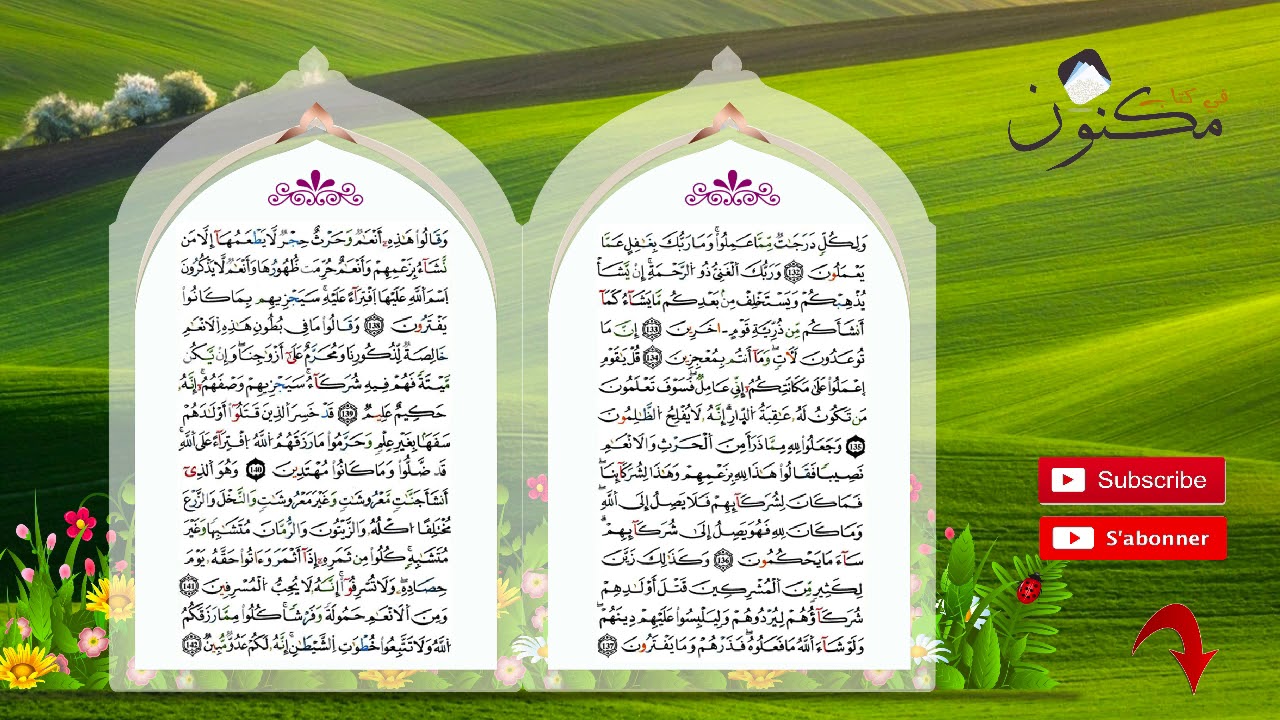 وَلِكُلٍّ دَرَجَٰتٌ مِّمَّا عَمِلُوا۟ وَمَا رَبُّكَ بِغَٰفِلٍ عَمَّا
يَعْمَلُونَ 132 وَرَبُّكَ اَ۬لْغَنِيُّ ذُو اُ۬لرَّحْمَةِ إِنْ يَّشَأْ
يُذْهِبْكُمْ وَيَسْتَخْلِفْ مِنۢ بَعْدِكُم مَّا يَشَآءُ كَمَآ
أَنشَأَكُم مِّن ذُرِّيَّةِ قَوْمٍ ـاخَرِينَ 133 إِنَّ مَا
تُوعَدُونَ لَأٓتٖ وَمَآ أَنتُم بِمُعْجِزِينَ 134 قُلْ يَٰقَوْمِ
اِ۪عْمَلُوا۟ عَلَىٰ مَكَانَتِكُمُۥٓ إِنِّي عَامِلٌ فَسَوْفَ تَعْلَمُونَ
مَن تَكُونُ لَهُۥ عَٰقِبَةُ اُ۬لدّ۪ارِ إِنَّهُۥ لَا يُفْلِحُ اُ۬لظَّٰلِمُونَ
135 وَجَعَلُوا۟ لِلهِ مِمَّا ذَرَأَ مِنَ اَ۬لْحَرْثِ وَالَانْعَٰمِ
نَصِيبًا فَقَالُوا۟ هَٰذَا لِلهِ بِزَعْمِهِمْ وَهَٰذَا لِشُرَكَآئِنَا
فَمَا كَانَ لِشُرَكَآئِهِمْ فَلَا يَصِلُ إِلَى اَ۬للَّهِ
وَمَا كَانَ لِلهِ فَهُوَ يَصِلُ إِلَىٰ شُرَكَآئِهِمْ
سَآءَ مَا يَحْكُمُونَ 136 وَكَذَٰلِكَ زَيَّنَ
لِكَثِيرٍ مِّنَ اَ۬لْمُشْرِكِينَ قَتْلَ أَوْلَٰدِهِمْ
شُرَكَآؤُهُمْ لِيُرْدُوهُمْ وَلِيَلْبِسُوا۟ عَلَيْهِمْ دِينَهُمْ
وَلَوْ شَآءَ اَ۬للَّهُ مَا فَعَلُوهُ فَذَرْهُمْ وَمَا يَفْتَرُونَ 137
وَقَالُوا۟ هَٰذِهِۦٓ أَنْعَٰمٌ وَحَرْثٌ حِجْرٌ لَّا يَطْعَمُهَآ إِلَّا مَن
نَّشَآءُ بِزَعْمِهِمْ وَأَنْعَٰمٌ حُرِّمَت ظُّهُورُهَا وَأَنْعَٰمٌ لَّا يَذْكُرُونَ
اَ۪سْمَ اَ۬للَّهِ عَلَيْهَا اَ۪فْتِرَآءً عَلَيْهِ سَيَجْزِيهِم بِمَا كَانُوا۟
يَفْتَرُونَ 138 وَقَالُوا۟ مَا فِي بُطُونِ هَٰذِهِ اِ۬لَانْعَٰمِ
خَالِصَةٌ لِّذُكُورِنَا وَمُحَرَّمٌ عَلَىٰٓ أَزْوَٰجِنَا وَإِنْ يَّكُن
مَّيْتَةً فَهُمْ فِيهِ شُرَكَآءُ سَيَجْزِيهِمْ وَصْفَهُمُۥٓ إِنَّهُۥ
حَكِيمٌ عَلِيمٌ 139 قَدْ خَسِرَ اَ۬لذِينَ قَتَلُوٓا۟ أَوْلَٰدَهُمْ
سَفَهًا بِغَيْرِ عِلْمٍ وَحَرَّمُوا۟ مَا رَزَقَهُمُ اُ۬للَّهُ اُ۪فْتِرَآءً عَلَى اَ۬للَّهِ
قَد ضَّلُّوا۟ وَمَا كَانُوا۟ مُهْتَدِينَ 140 وَهُوَ اَ۬لذِيٓ
أَنشَأَ جَنَّٰتٍ مَّعْرُوشَٰتٍ وَغَيْرَ مَعْرُوشَٰتٍ وَالنَّخْلَ وَالزَّرْعَ
مُخْتَلِفًا اُكْلُهُۥ وَالزَّيْتُونَ وَالرُّمَّانَ مُتَشَٰبِهًا وَغَيْرَ
مُتَشَٰبِهٍ كُلُوا۟ مِن ثَمَرِهِۦٓ إِذَآ أَثْمَرَ وَءَاتُوا۟ حَقَّهُۥ يَوْمَ
حِصَادِهِۦ وَلَا تُسْرِفُوٓا۟ إِنَّهُۥ لَا يُحِبُّ اُ۬لْمُسْرِفِينَ 141
وَمِنَ اَ۬لَانْعَٰمِ حَمُولَةً وَفَرْشًا كُلُوا۟ مِمَّا رَزَقَكُمُ
اُ۬للَّهُ وَلَا تَتَّبِعُوا۟ خُطْوَٰتِ اِ۬لشَّيْطَٰنِ إِنَّهُۥ لَكُمْ عَدُوٌّ مُّبِينٌ 142
في كتاب
مكنون
Subscribe
S'abonner